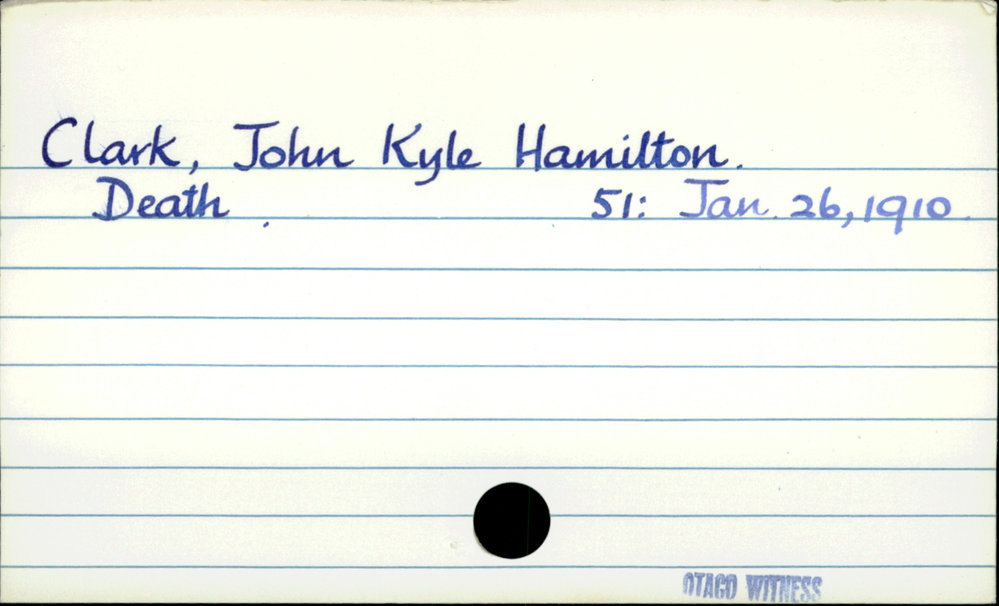 Clark, John Kyle Hamilton.
Death . 51: Jan. 26, 1910.
OTAGO WITNESS